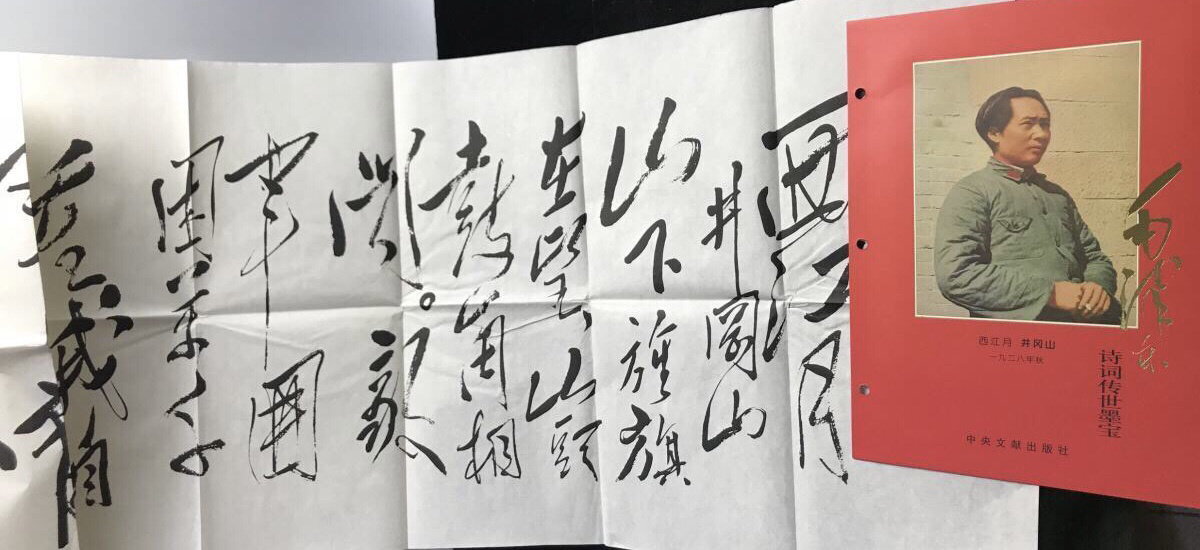 西江月
井岡山
山下旌旗
在望山頭
鼓角相
聞。敵
軍圍
困萬千
重我自
毛澤東
诗词传世墨宝
西江月 井冈山
一九二八年秋
中央文献出版社